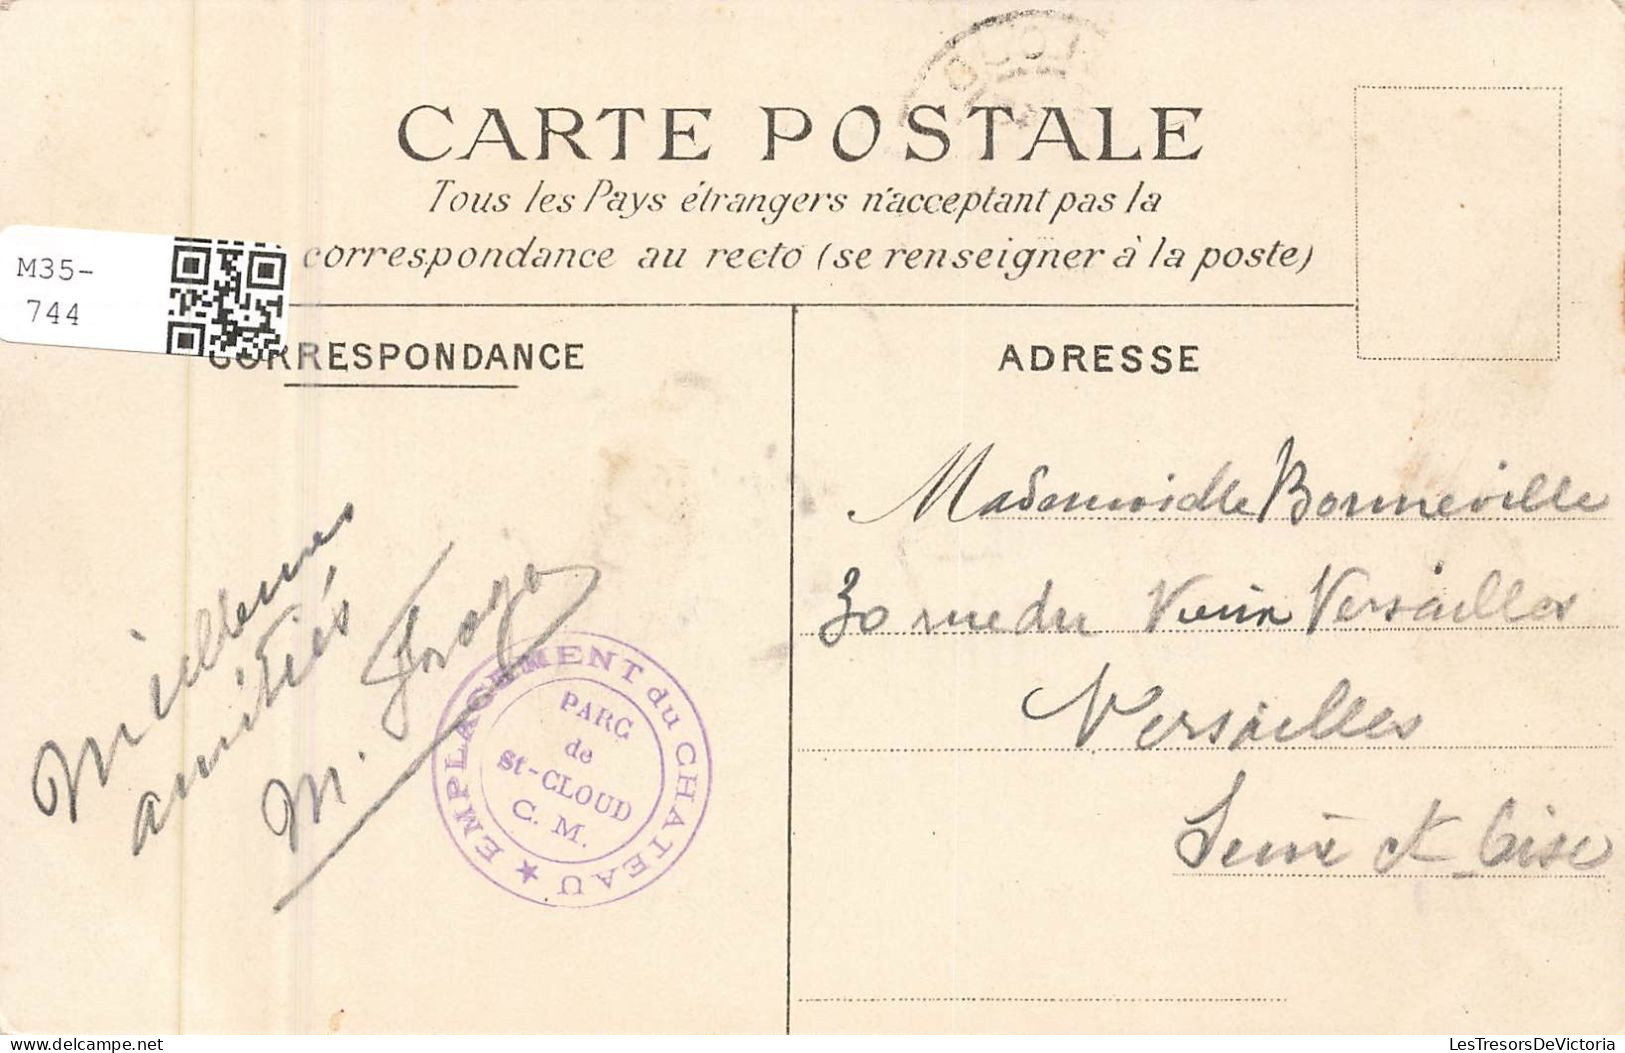 CARTE POSTALE
Tous les Pays étrangers n'acceptant pas la
correspondance au recto (se renseigner à la poste)
M35-
744
CORRESPONDANCE
ADRESSE
Mille bonnes
amitiés
M.
EMPLACEMENT du CHATEAU ★
PARC
de
St-CLOUD
C. M.
Mademoiselle Bonneville
30 rue du Vieux Versailles
Versailles
Seine et Oise
delcampe.net
LesTresorsDeVictoria